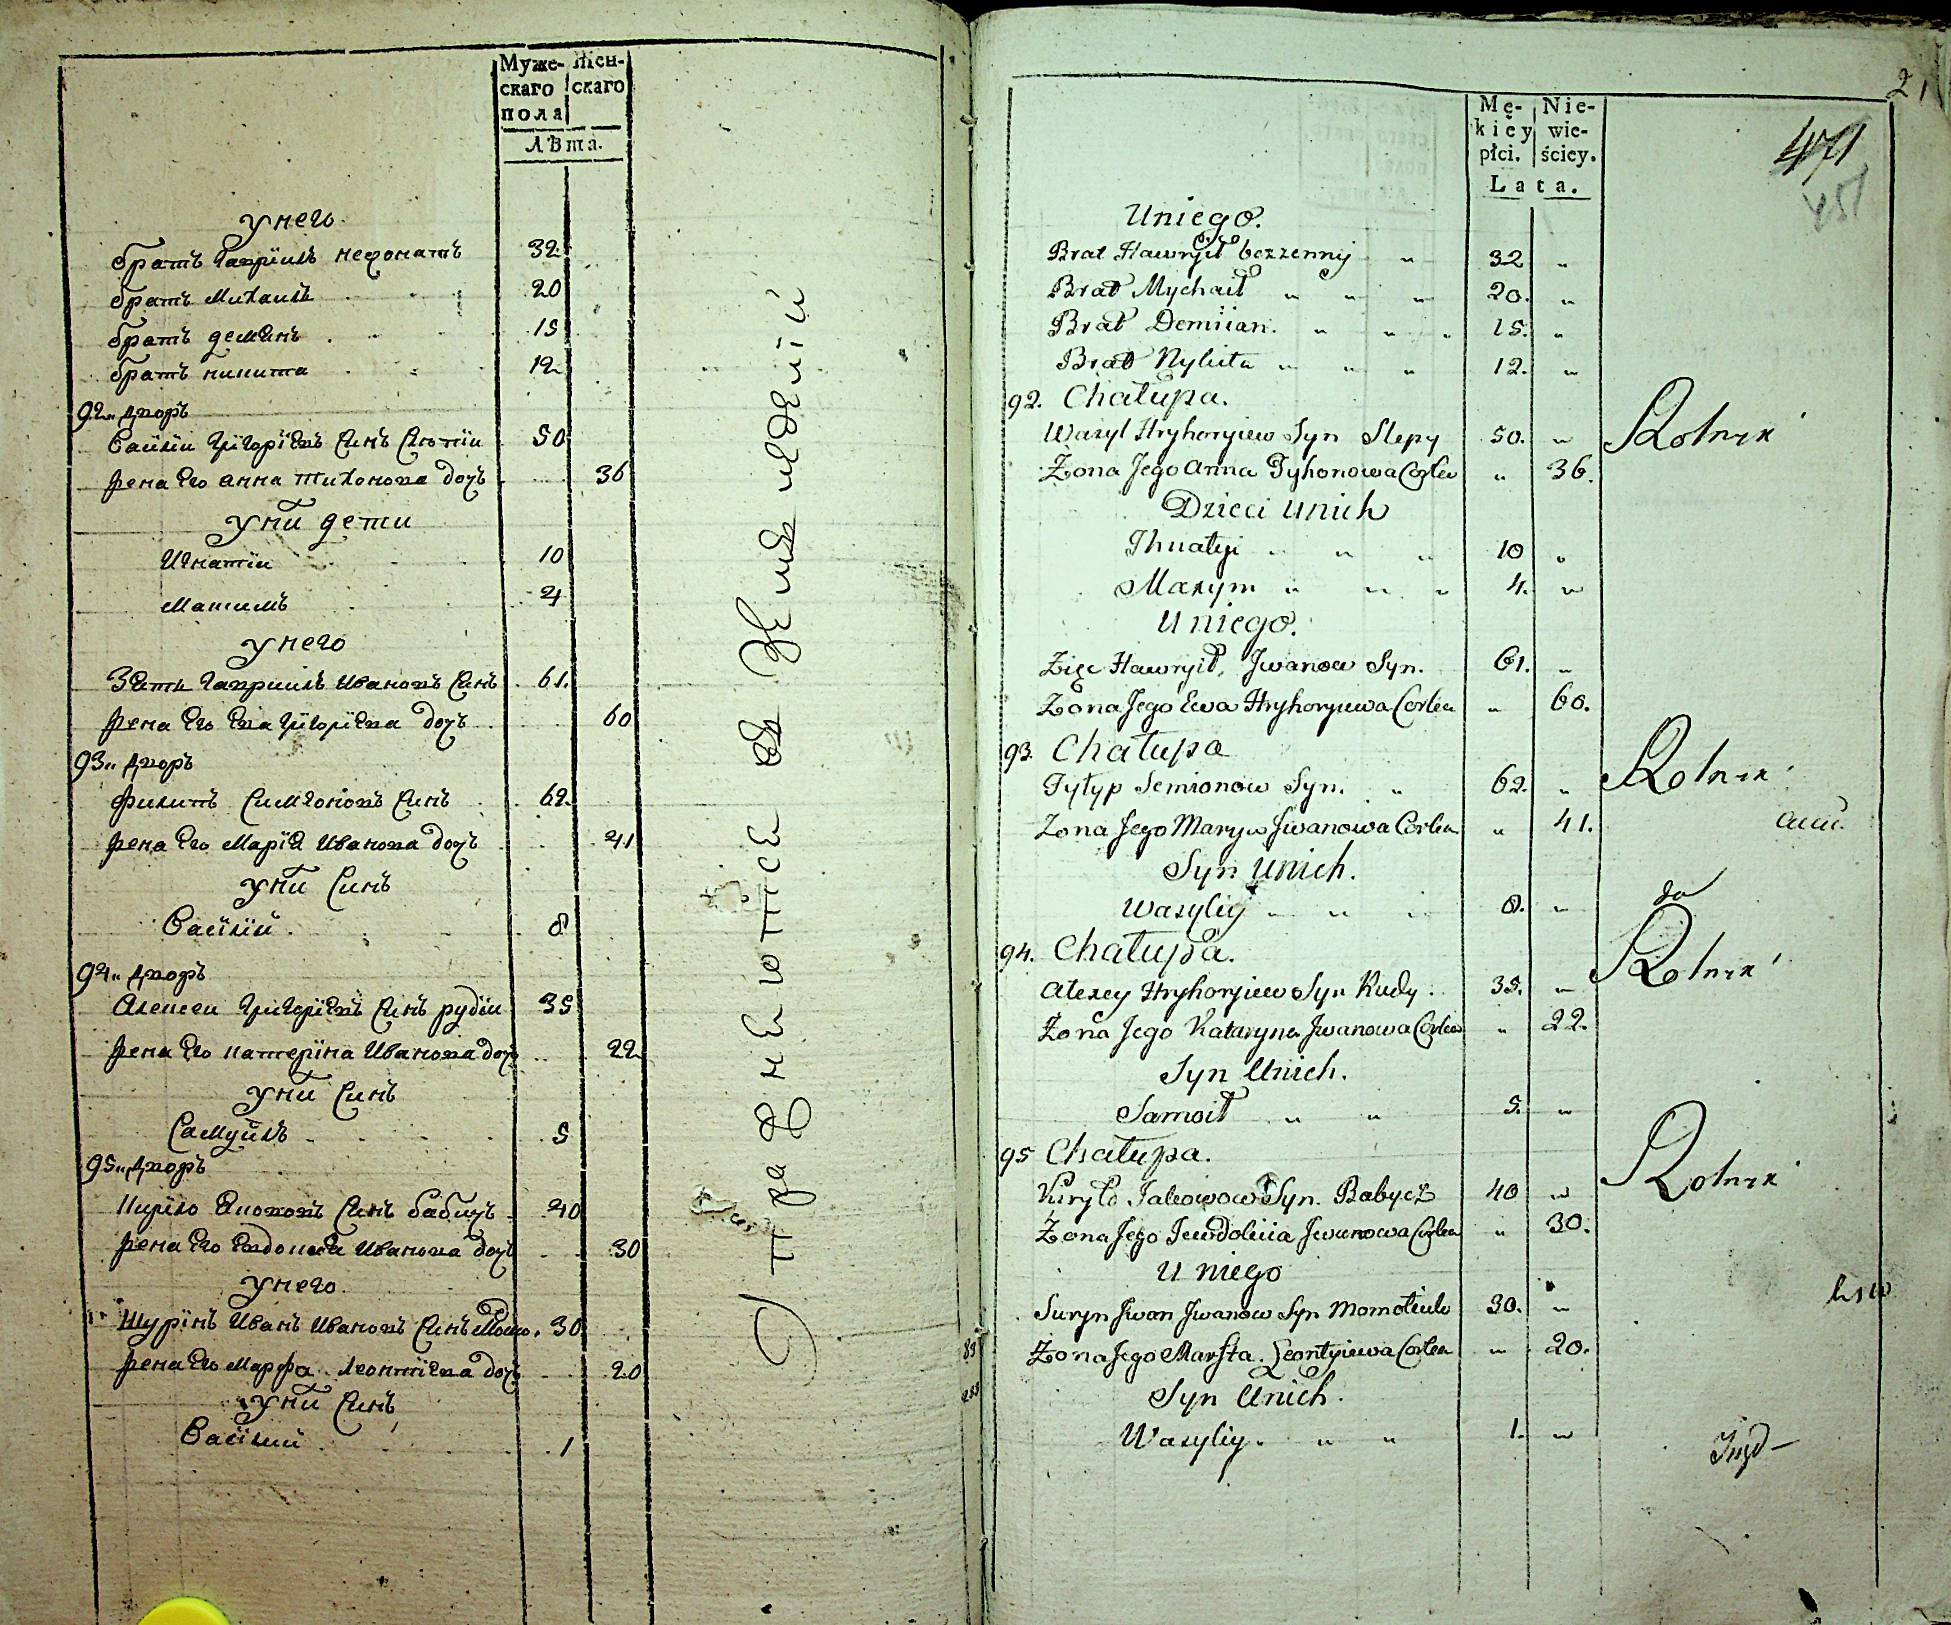 Муже-
скаго
пола
Жен-
скаго
Лѣта.
унего
братъ Гаврїилъ нежонатъ 32
братъ Михаилъ 20
братъ демянъ 15
братъ никита 12
92 дворъ
Василии Григорїевъ Синъ 50
жена Его анна тихонова дочъ 36
уних дети
Игнатїи 10
Максимъ 4
унего
Зять Гавриилъ Ивановъ Синъ 61.
жена Его Ева Григорїева дочъ 60
93 дворъ
филипъ Симионовъ Синъ 62
жена Его Марїя Иванова дочъ 41
уних Синъ
Василий 8
94 дворъ
Алексеи Григорїевъ Синъ рудїи 35
жена Его катерїна Иванова дочъ 22
уних Синъ
Самуйлъ 5
95 дворъ
Кирило Яковов Синъ бабичъ 40
жена Его Евдокия Иванова дочъ 30
унего
Шурїнъ Иванъ Ивановъ Синъ 30
жена Его Марфа Леонтїева дочъ 20
уних Синъ
Василий 1
Mę-
kiéy
płci.
Nie-
wie-
ściey.
Lata.
21
471
451
Uniego.
Brat Hawryił bezzenny " 32 "
Brat Mychaił " " " 20. "
Brat Demiian. " " " 15. "
Brat Nykita " " " 12. "
92. Chałupa.
Wasyl Hryhoryiew Syn Slepy 50. " Rolnik
Żona Jego Anna Tyhonowa Corka " 36.
Dzieci Unich
Ihnatyi " " " 10 "
Maxym " " " 4. "
Uniego.
Zięc Hawryił, Jwanow Syn. 61. "
Żona Jego Ewa Hryhoryiewa Corka " 60.
93. Chałupa Rolnik
Fyłyp Semionow Syn. " 62. "
Żona Jego Marya Jwanowa Corka " 41.
Syn Unich.
Wasyliy " " " 8. "
94. Chałupa. Rolnik
Alexey Hryhoryiew Syn Rudy. 35. "
Żona Jego Kataryna Jwanowa Corka " 22.
Syn Unich.
Samoił " " 5. "
95 Chałupa. Rolnik
Kyryło Jakowow Syn. Babycz 40 "
Żona Jego Jewdokiia Jwanowa Corka " 30.
U niego
Suryn Jwan Jwanow Syn 30. "
Żona Jego Marfta. Leontyiewa Corka " 20.
Syn Unich.
Wasyliy. " " 1. "